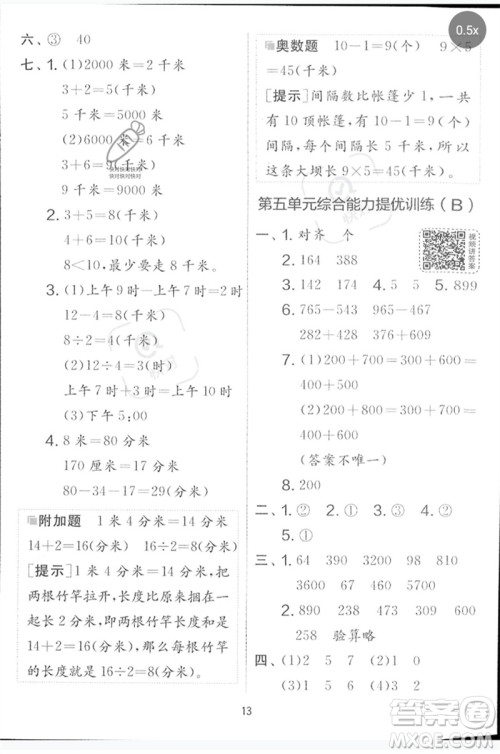 0.5x
六、③ 40
七、1. (1)2000 米=2 千米
3+2=5(千米)
5 千米=5000 米
(2)6000 米=6 千米
3+6=9(千米)
9 千米=9000 米
2. 3+5=8(千米)
5+5=10(千米)
8<10, 所以小亮更近。
3. (1)上午 9 时-上午 7 时=2 时
12-4=8(时)
8÷2=4(时)
(2)12÷4=3(时)
上午 7 时+3 时=上午 10 时
(3)下午 5:00
4. 8 米=80 分米
170 厘米=17 分米
80-34-17=29(分米)
附加题 1 米 4 分米=14 分米
14+2=16(分米) 16÷2=8(分米)
[提示]如果把重叠的部分移开,把
两根竹竿拉开,长度比原来长
14+2=16(分米),那么每根竹竿
的长度就是 16÷2=8(分米)。
奥数题 10-1=9(个) 9×5
=45(千米)
[提示]间隔数比帐篷少 1,一共
有 10 顶帐篷,就有 10-1=9(个)
间隔,每个间隔长 5 千米,所以
这条大坝长 9×5=45(千米)。
第五单元综合能力提优训练(B)
一、1. 对齐 个
视频讲答案
2. 164 388
3. 142 174 4. 5 5 5. 899
6. 765-543 965-467
282+428 110+600
7. (1)200+700=900
400+500=900
(2)800+200=1000
400+600=1000
(答案不唯一)
8. 200
二、1. ② 2. ① 3. ② 4. ②
5. ①
三、1. 64 1000 34 110
3600 4650 67 1300
2. 890 238 637 900
258 验算略
四、(1)2 (2)7 1 0 (1)1
(2)0 5 9
13
快对快对快对
答案圈
MXQE.COM